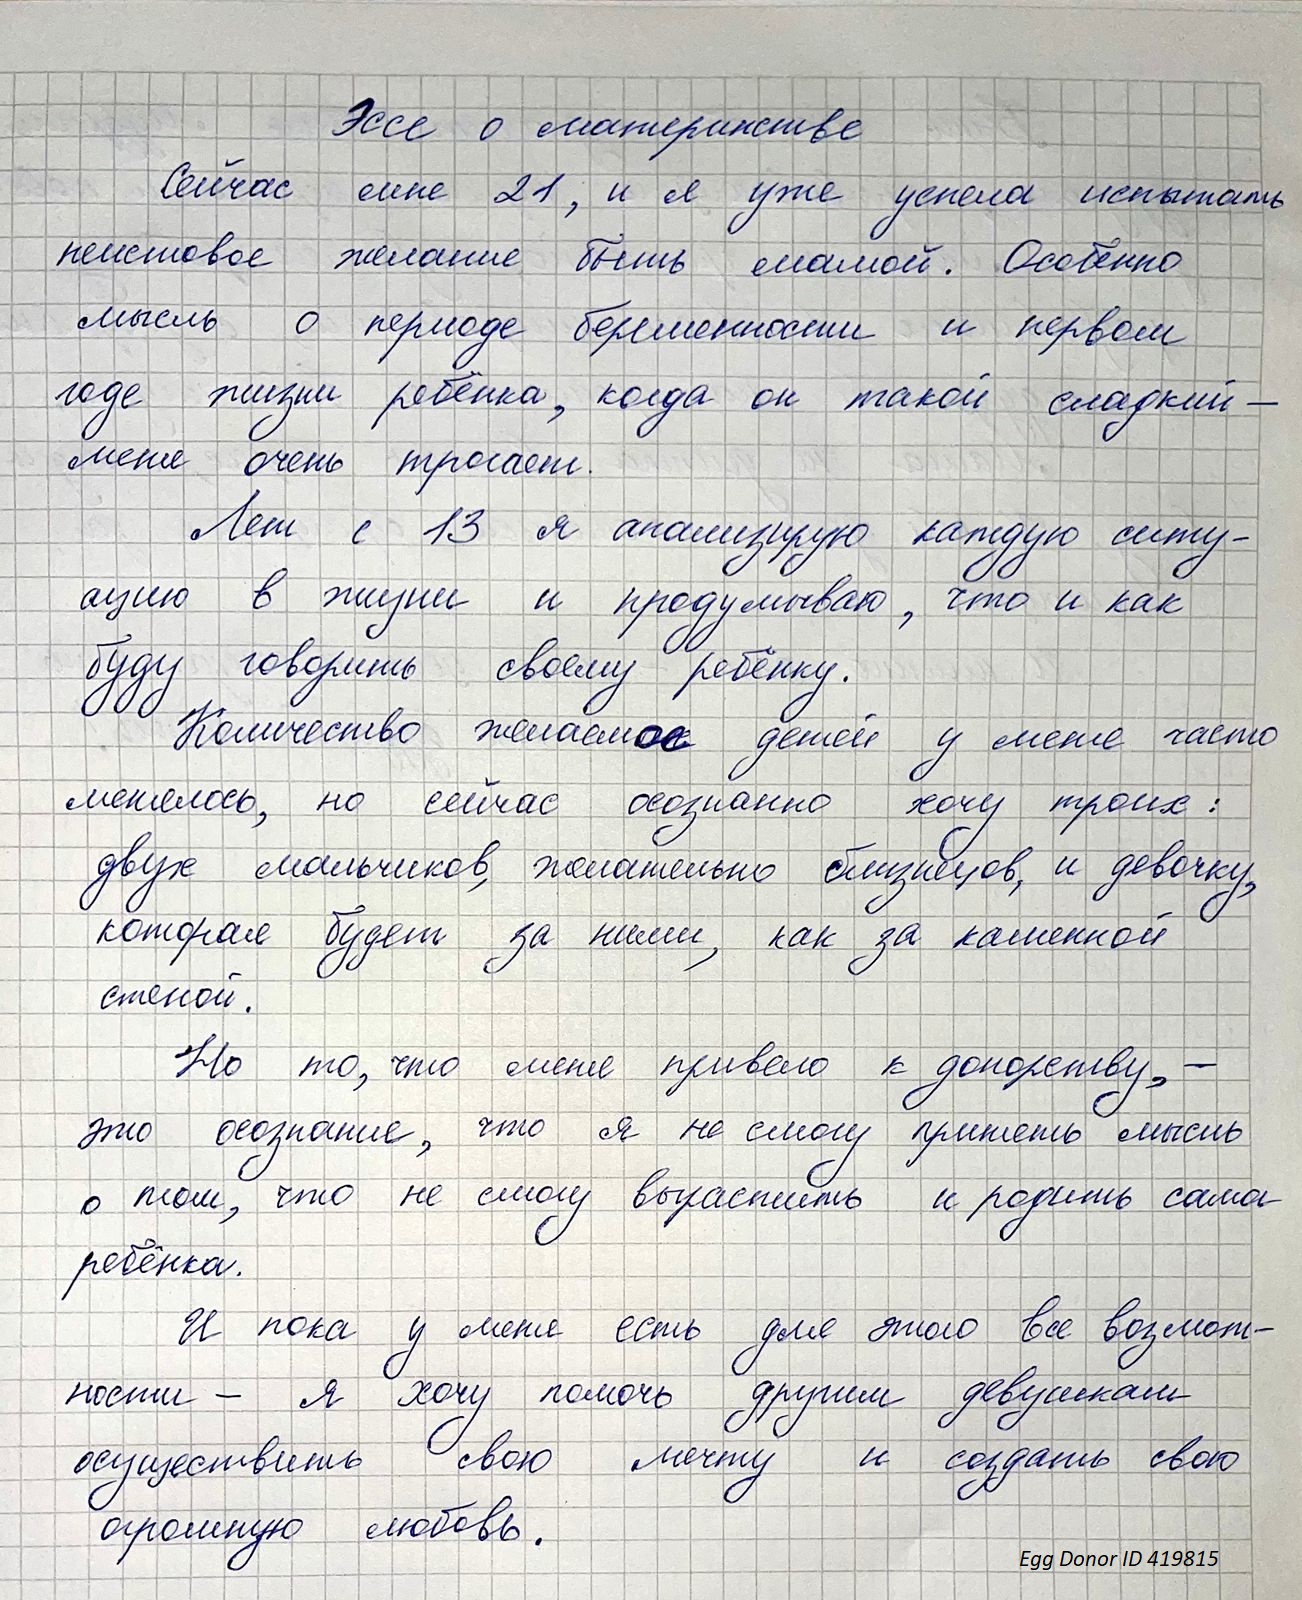 Эссе о материнстве
Сейчас мне 21, и я уже успела испытать
неистовое желание быть мамой. Особенно
мысль о периоде беременности и первом
годе жизни ребёнка, когда он такой сладкий —
меня очень трогает.
Лет с 13 я анализирую каждую ситу-
ацию в жизни и продумываю, что и как
буду говорить своему ребёнку.
Количество желаемое детей у меня часто
менялось, но сейчас осознанно хочу троих:
двух мальчиков, желательно близнецов, и девочку,
которая будет за ними, как за каменной
стеной.
Но то, что меня привело к донорству, —
это осознание, что я не смогу принять мысль
о том, что не смогу вырастить и родить сама
ребёнка.
И пока у меня есть для этого все возмож-
ности – я хочу помочь другим девушкам
осуществить свою мечту и создать свою
огромную любовь.
Egg Donor ID 419815